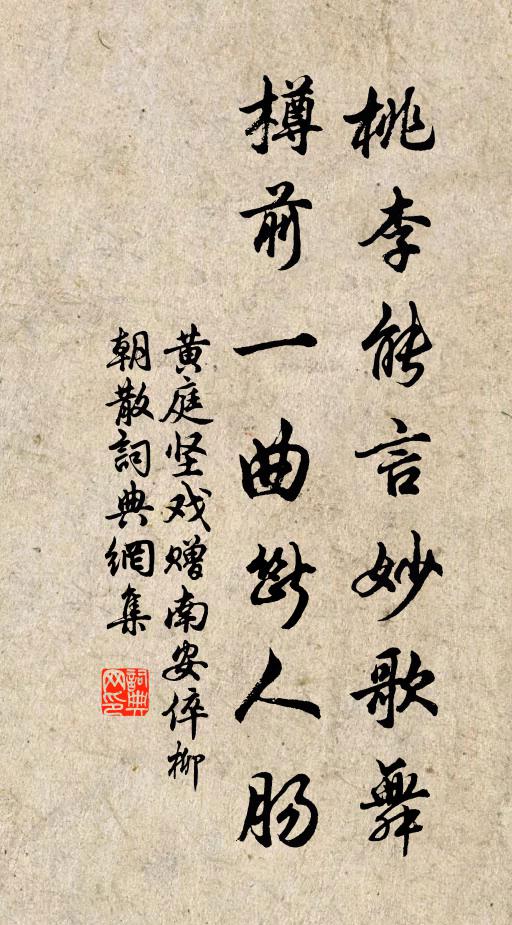 桃李能言妙歌舞
樽前一曲断人肠
黄庭坚戏赠南安倅柳
朝散詞典網集
詞典网印